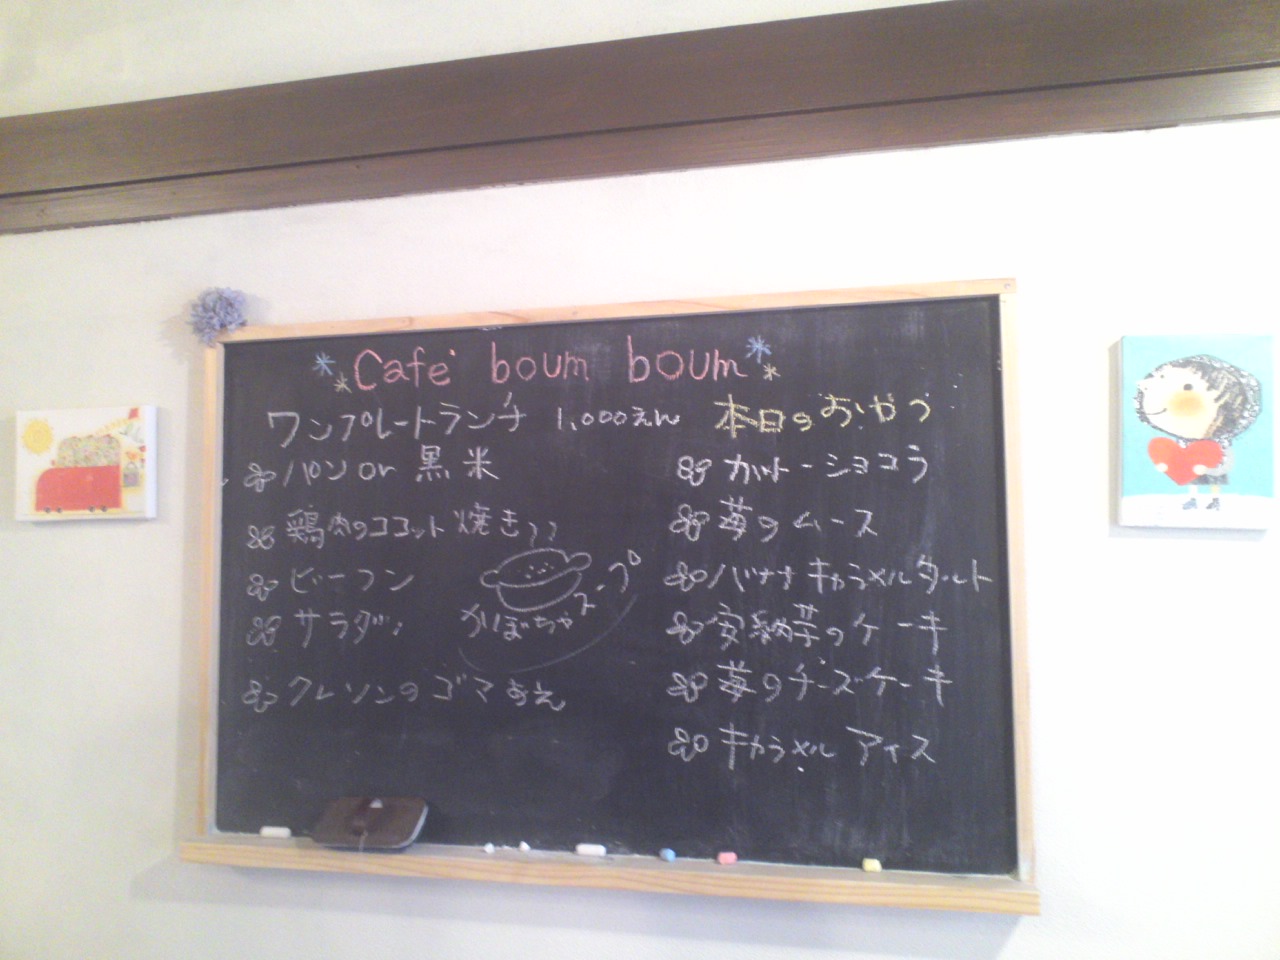 Café boum boum
ワンプレートランチ 1,000えん
パン or 黒米
鶏肉のココット焼き
ビーフン
サラダ
クレソンのゴマあえ
かぼちゃスープ
本日のおやつ
ガトーショコラ
苺のムース
バナナキャラメルタルト
安納芋のケーキ
苺のチーズケーキ
キャラメルアイス